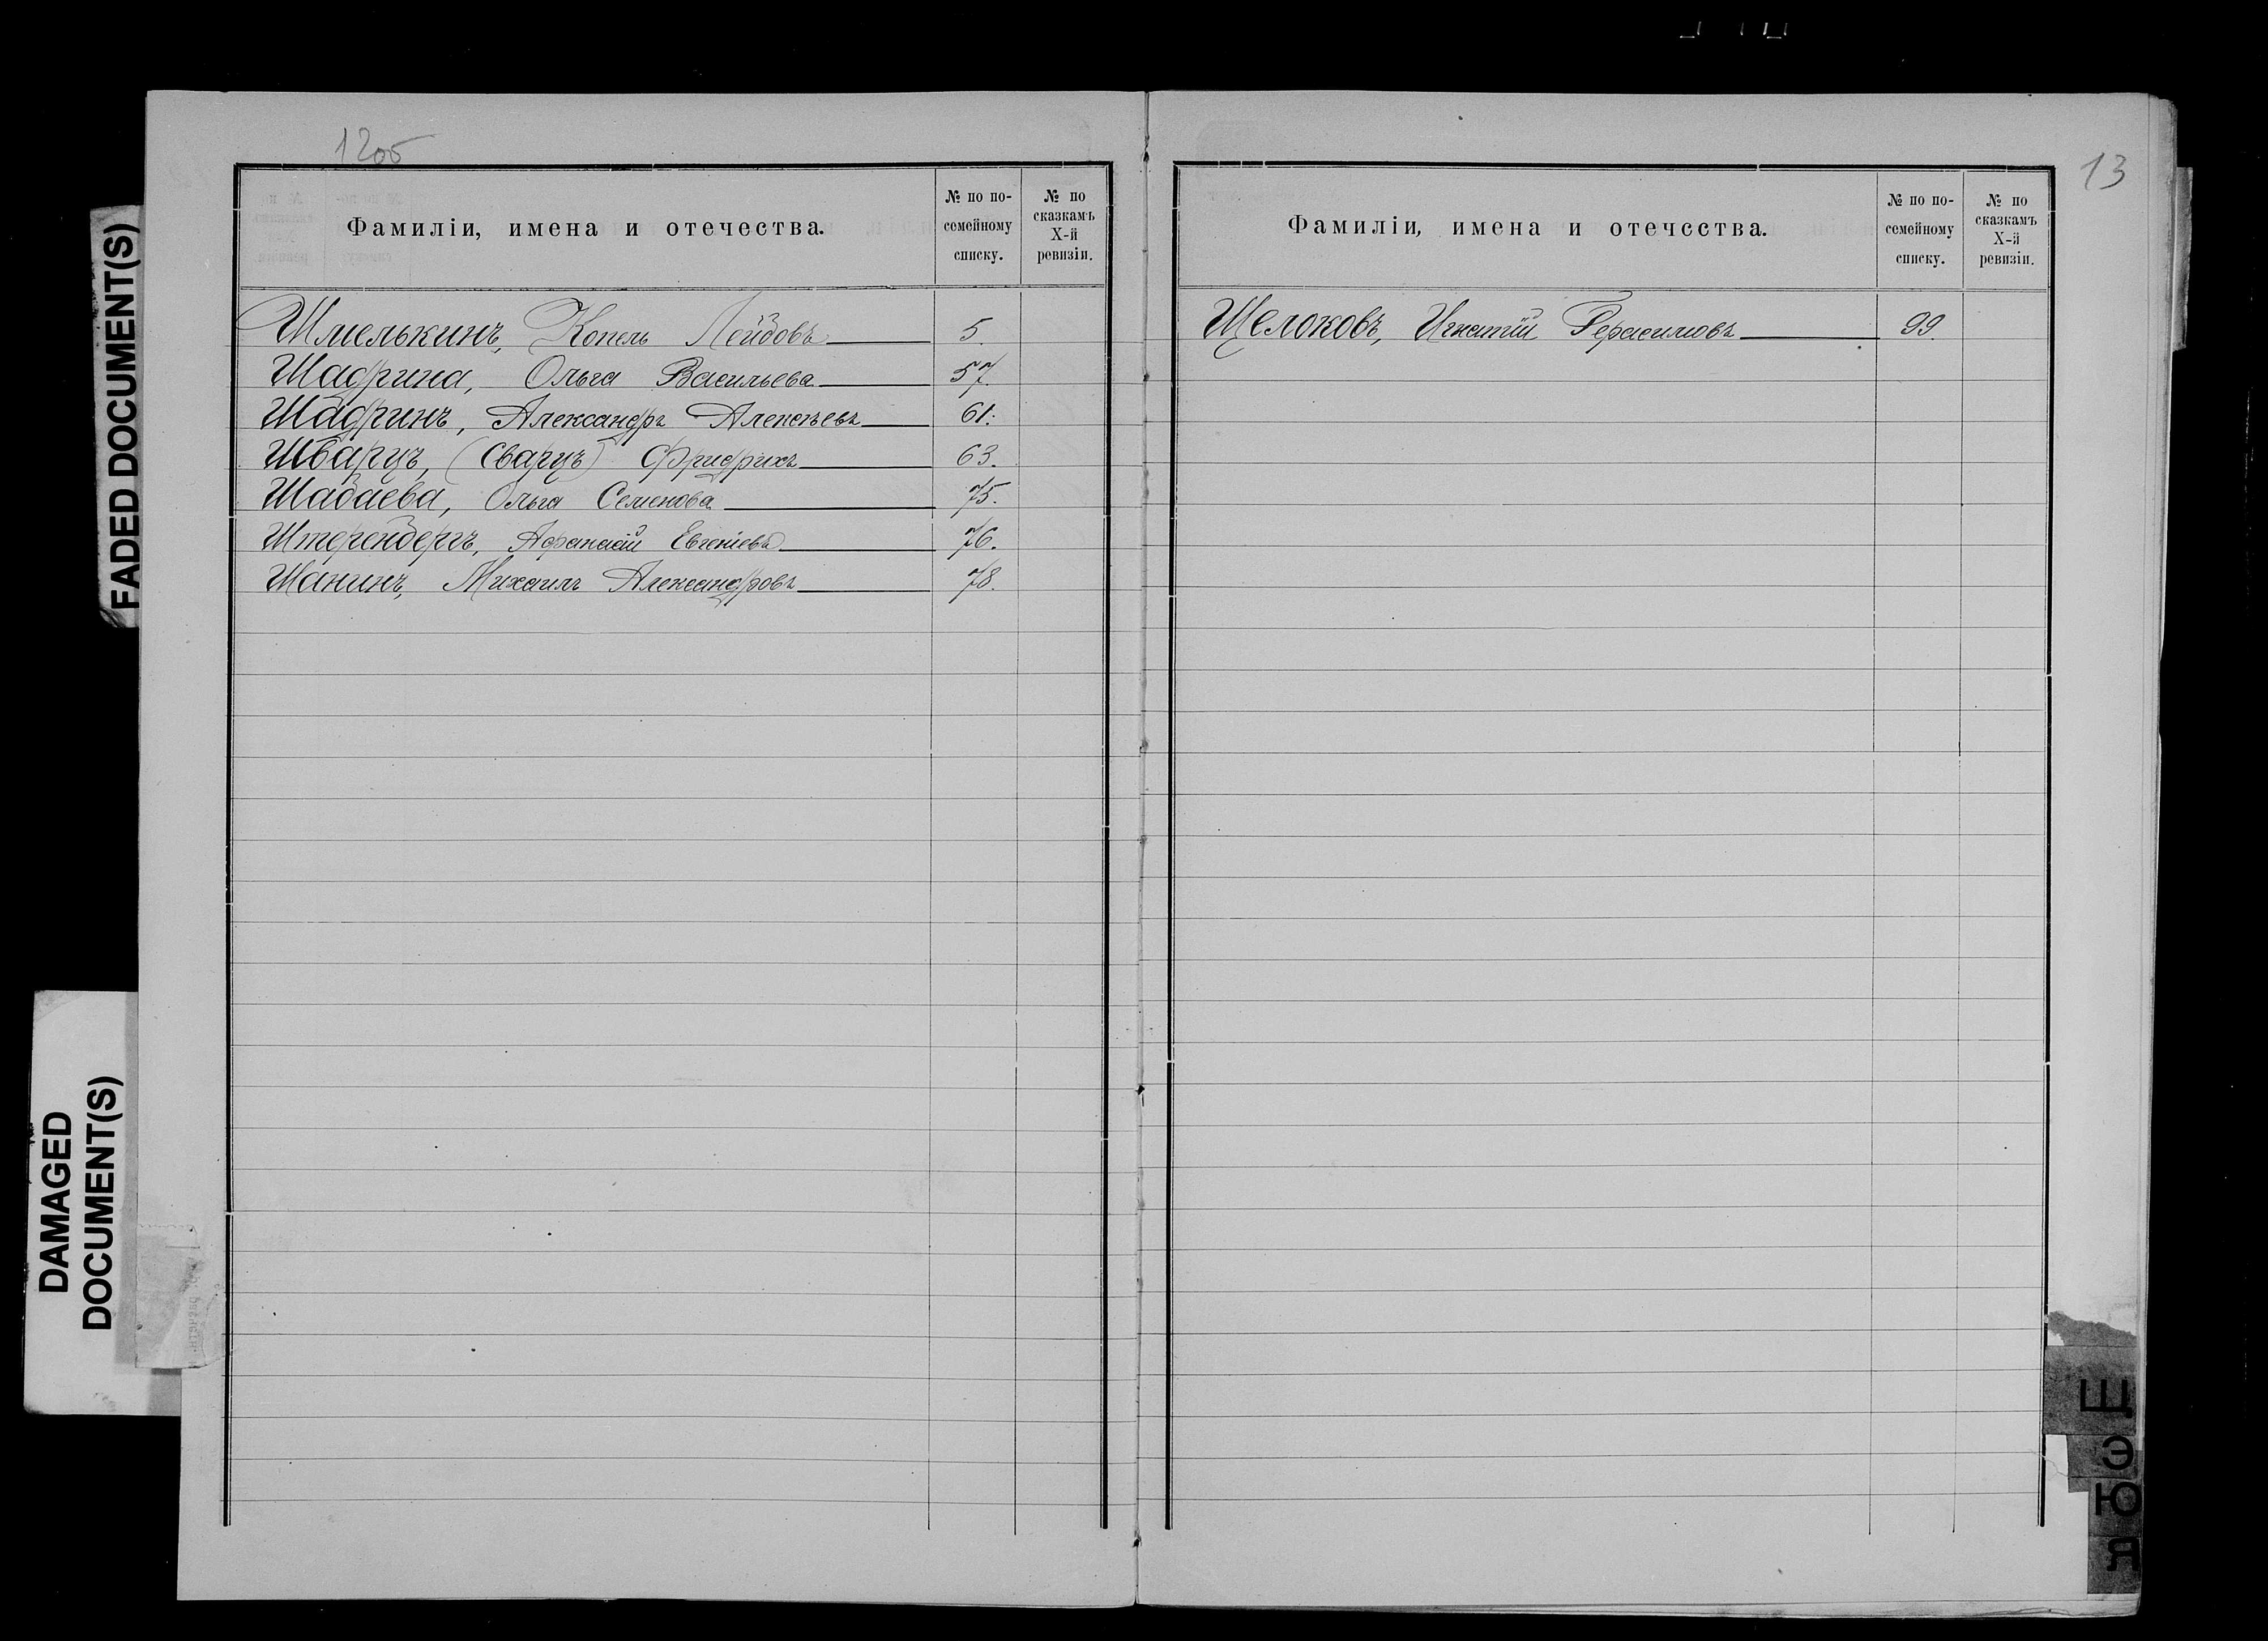 12об
Фамиліи, имена и отечества.
№ по по-
семейному
списку.
№ по
сказкамъ
X-й
ревизіи.
Шмелькинъ, Копель Лейбовъ 5.
Шадрина, Ольга Васильева 57.
Шадринъ, Александръ Алексѣевъ 61.
Шварцъ, (Сварцъ) Фридрихъ 63.
Шабаева, Ольга Семенова 75.
Штеренбергъ, Афанасій Евгеніевъ 76.
Шанинъ, Михаилъ Александровъ 78.
13
Фамиліи, имена и отечества.
№ по по-
семейному
списку.
№ по
сказкамъ
X-й
ревизіи.
Щелоковъ, Игнатій Герасимовъ 99.
Щ
Э
Ю
Я
FADED DOCUMENT(S)
DAMAGED
DOCUMENT(S)